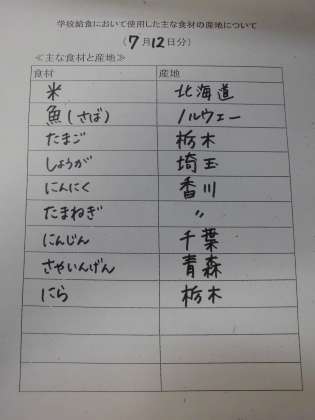 学校給食において使用した主な食材の産地について
(7月12日分)
≪主な食材と産地≫
食材 産地
米 北海道
魚(さば) ノルウェー
たまご 栃木
しょうが 埼玉
にんにく 香川
たまねぎ 〃
にんじん 千葉
さやいんげん 青森
にら 栃木